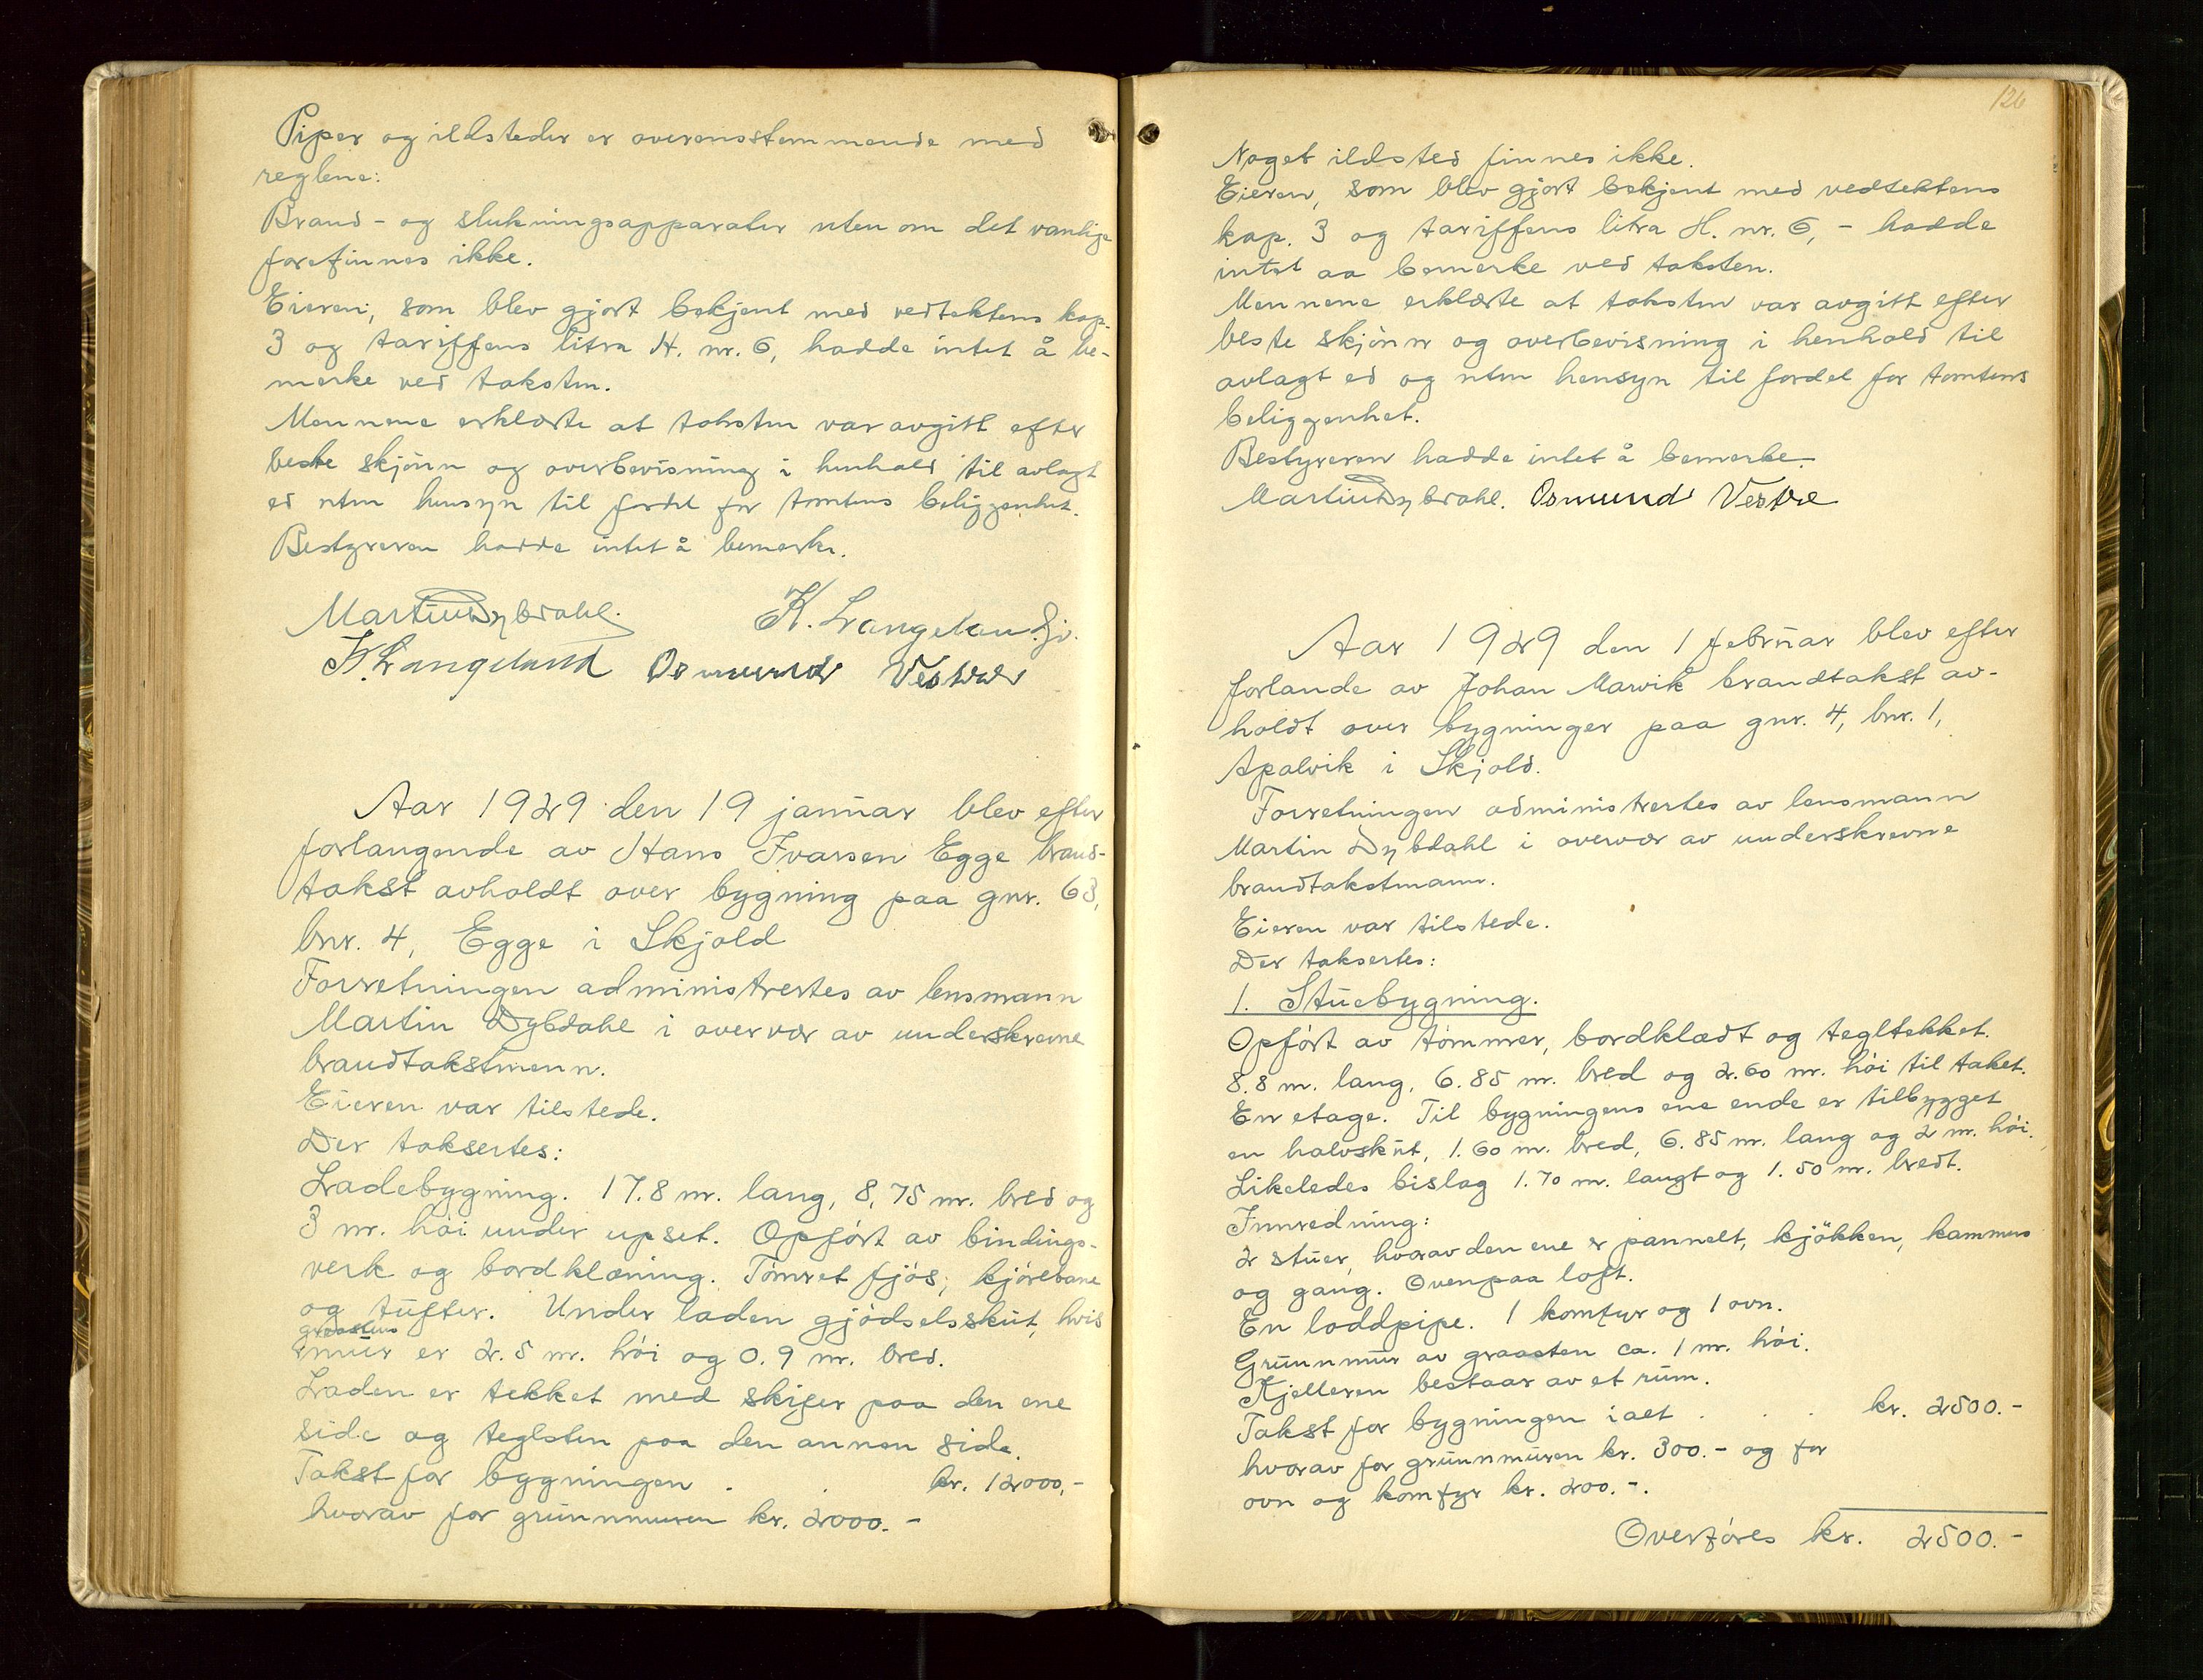 Piper og ildsteder er overensstemmende med
reglene:
Brand- og slukningsapparater utenom det vanlige
forefinnes ikke.
Eieren, som blev gjort bekjent med vedtektens kap.
3 og tariffens litra H. nr. 6, hadde intet å be-
merke ved taksten.
Mennene erklærte at taksten var avgitt efter
beste skjönn og overbevisning i henhold til avlagt
ed uten hensyn til fordel for tomtens beliggenhet.
Bestyreren hadde intet å bemerke.
Martin Dybdahl. K. Langeland jr.
K. Langeland Osmund Vestre
Aar 1929 den 19 januar blev efter
forlangende av Hans Ivarsen Egge brand-
takst avholdt over bygning paa gnr. 63,
bnr. 4, Egge i Skjold
Forretningen administrertes av lensmann
Martin Dybdahl i overvær av underskrevne
brandtakstmenn.
Eieren var tilstede.
Der taksertes:
Ladebygning. 17.8 m. lang, 8,75 m. bred og
3 m. hói under upset. Opfórt av bindings-
verk og bordklæning. Tómret fjós, kjórebane
og tufter. Under laden gjódselsskut, hvis
graastens
mur er 2.5 m. hói og 0.9 m. bred.
Laden er tekket med skifer paa den ene
side og teglsten paa den annen side.
Takst for bygningen . . kr. 12000,-
hvorav for grunnmuren kr. 2000.-
126
Noget ildsted finnes ikke.
Eieren, som blev gjort bekjent med vedtektens
kap. 3 og tariffens litra H. nr. 6, - hadde
intet aa bemerke ved taksten.
Mennene erklærte at taksten var avgitt efter
beste skjónn og overbevisning i henhold til
avlagt ed og uten hensyn til fordel for tomtens
beliggenhet.
Bestyreren hadde intet å bemerke.
Martin Dybdahl. Osmund Vestre
Aar 1929 den 1 februar blev efter
forlande av Johan Marvik brandtakst av-
holdt over bygninger paa gnr. 4, bnr. 1,
Apalvik i Skjold.
Forretningen administrertes av lensmann
Martin Dybdahl i overvær av underskrevne
brandtakstmann.
Eieren var tilstede.
Der taksertes:
1. Stuebygning.
Opfórt av tómmer, bordklædt og tegltekket.
8.8 m. lang, 6.85 m. bred og 2.60 m. hói til taket.
En etage. Til bygningens ene ende er tilbygget
en halvskut, 1.60 m. bred, 6.85 m. lang og 2 m. hói.
Likeledes bislag 1.70 m. langt og 1.50 m. bredt.
Innredning:
2 stuer, hvorav den ene er pannelt, kjökken, kammers
og gang. Ovenpaa loft.
En loddpipe. 1 komfyr og 1 ovn.
Grunnmur av graasten ca. 1 m. hói.
Kjelleren bestaar av et rum.
Takst for bygningen ialt . . . kr. 2500.-
hvorav for grunnmuren kr. 300.- og for
ovn og komfyr kr. 200.-.
Overfóres kr. 2500.-